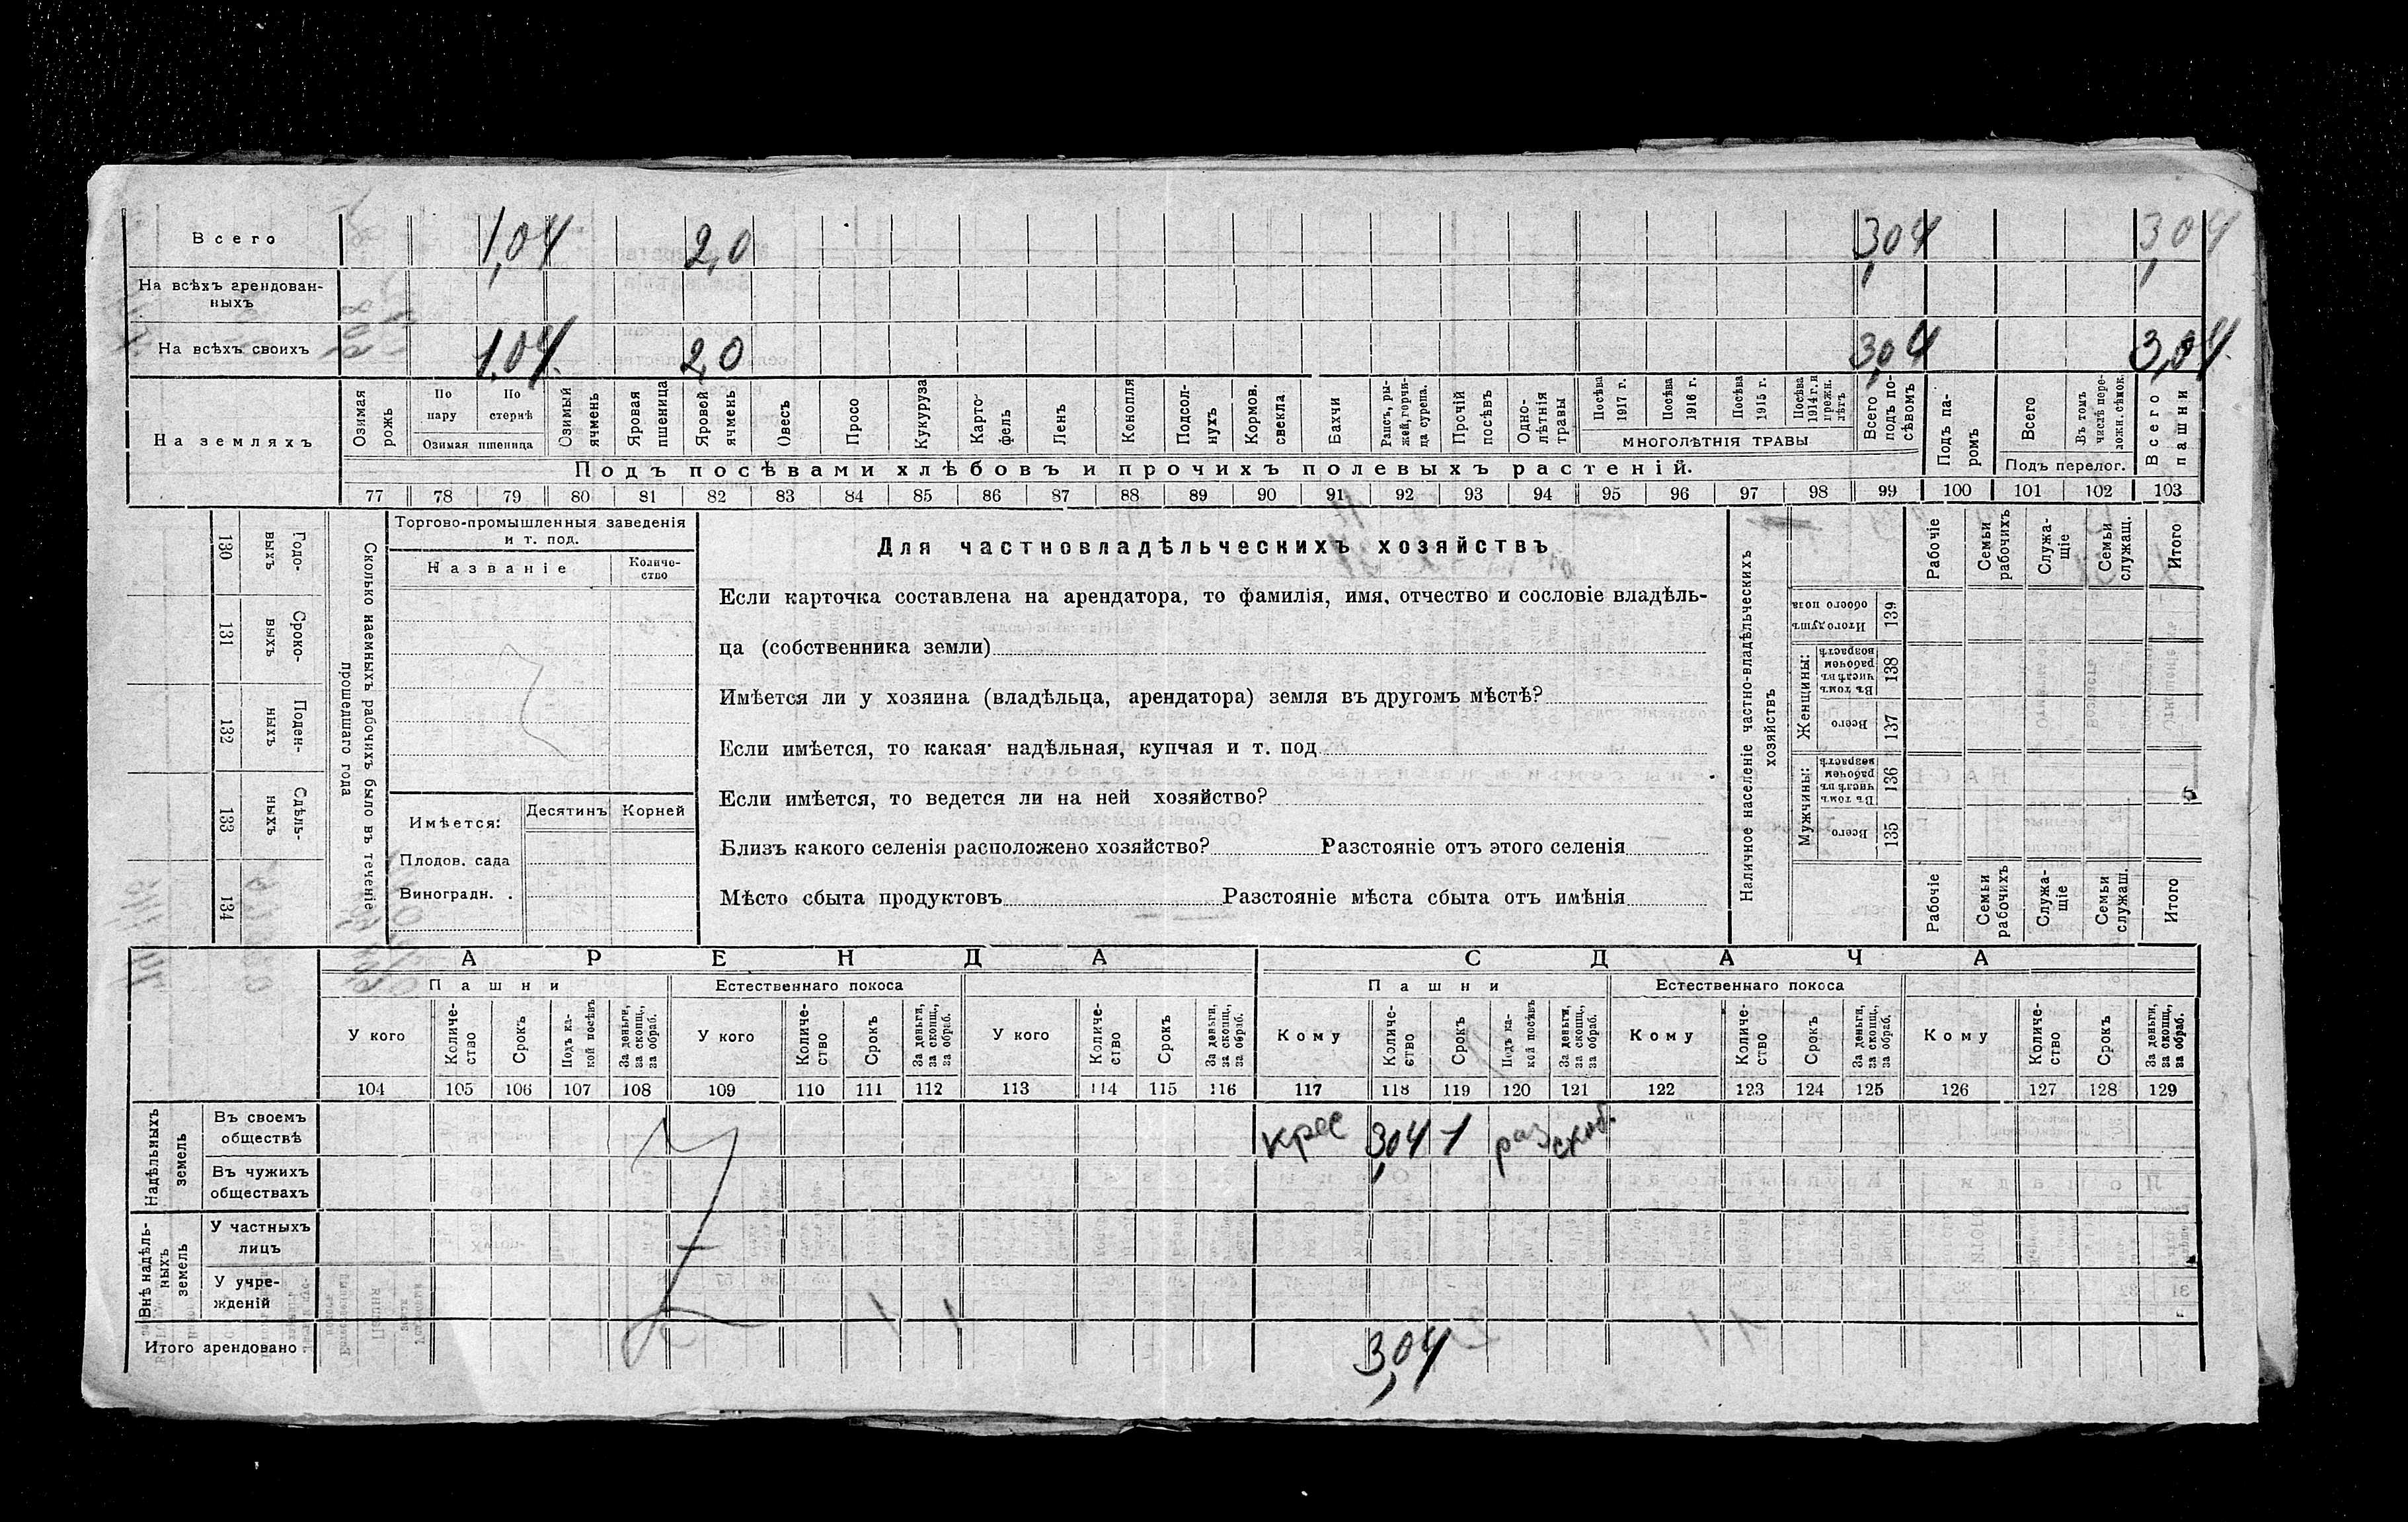 Всего 1,04 2,0 3,04 3,04
На всѣхъ арендован-
ныхъ
На всѣхъ своихъ 1,04 2,0 3,04 3,04
На земляхъ
Озимая рожь
По пару
По стернѣ
Озимая пшеница
Озимый ячмень
Яровая пшеница
Яровой ячмень
Овесъ
Просо
Кукуруза
Карто-
фель
Ленъ
Конопля
Подсол-
нухъ
Кормов. свекла.
Бахчи
Рапсъ, ры-
жей, горчи-
ца сурепа.
Прочій посѣвъ
Одно-
лѣтнія
травы
Посѣва 1917 г.
Посѣва 1916 г.
Посѣва 1915 г.
Посѣва 1914 г. и прежн. лѣтъ
МНОГОЛѢТНІЯ ТРАВЫ
Всего подъ по-
сѣвомъ
Подъ па-
ромъ
Всего
Въ томъ числѣ пере-
ложн. сѣнок.
Подъ перелог.
Всего пашни
Подъ посѣвами хлѣбовъ и прочихъ полевыхъ растеній.
77 78 79 80 81 82 83 84 85 86 87 88 89 90 91 92 93 94 95 96 97 98 99 100 101 102 103
130 Годо-
выхъ
131 Сроко-
выхъ
132 Поден-
ныхъ
133 Сдѣль-
ныхъ
134
Сколько наемныхъ рабочихъ было въ теченіе
прошедшаго года
Торгово-промышленныя заведенія
и т. под.
Названіе
Количе-
ство
Имѣется:
Десятинъ Корней
Плодов. сада
Виноградн. .
Для частновладѣльческихъ хозяйствъ
Если карточка составлена на арендатора, то фамилія, имя, отчество и сословіе владѣль-
ца (собственника земли)
Имѣется ли у хозяина (владѣльца, арендатора) земля въ другомъ мѣстѣ?
Если имѣется, то какая: надѣльная, купчая и т. под
Если имѣется, то ведется ли на ней хозяйство?
Близъ какого селенія расположено хозяйство? Разстояніе отъ этого селенія
Мѣсто сбыта продуктовъ Разстояніе мѣста сбыта отъ имѣнія
Наличное населеніе частно-владѣльческихъ
хозяйствъ
Рабочіе
Семьи рабочихъ
Служа-
щіе
Семьи служащ.
Итого
Итого душъ обоего пола 139
Женщины:
Въ томъ числѣ въ рабочемъ возрастѣ 138
Всего 137
Мужчины:
Въ томъ числѣ въ рабочемъ возрастѣ 136
Всего 135
Рабочіе
Семьи рабочихъ
Служа-
щіе
Семьи служащ.
Итого
АРЕНДА СДАЧА
Пашни Естественнаго покоса Пашни Естественнаго покоса
У кого
Количе-
ство
Срокъ
Подъ ка-
кой посѣвъ
За деньги, за скопщ., за обраб.
У кого
Количе-
ство
Срокъ
За деньги, за скопщ., за обраб.
У кого
Количе-
ство
Срокъ
За деньги, за скопщ., за обраб.
Кому
Количе-
ство
Срокъ
Подъ ка-
кой посѣвъ
За деньги, за скопщ., за обраб.
Кому
Количе-
ство
Срокъ
За деньги, за скопщ., за обраб.
Кому
Количе-
ство
Срокъ
За деньги, за скопщ., за обраб.
104 105 106 107 108 109 110 111 112 113 114 115 116 117 118 119 120 121 122 123 124 125 126 127 128 129
Надѣльныхъ
земель
Въ своемъ
обществѣ
крес 3,04 1 раз
Въ чужихъ
обществахъ
Внѣ надѣль-
ныхъ
земель
У частныхъ
лицъ
У учре-
жденій
Итого арендовано 3,04